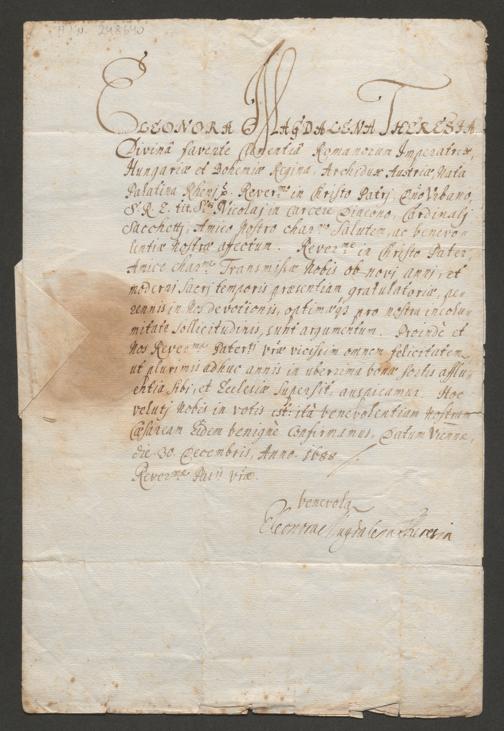 ELEONORA MAGDALENA THERESIA
Divinâ favente Clementiâ Romanorum Imperatrix,
Hungariæ et Bohemiæ Regina, Archidux Austriæ Nata
Palatina Rheni &. Reverme in Christo Patri, Dno Urbano,
S.R.E. tit. Sti Nicolaj in Carcere Diacono, Cardinalj
Sacchettj, Amico Nostro charmo Salutem, ac benevo-
lentiæ nostræ afectum. Reverme in Christo Pater,
Amice charme Transmissæ Nobis ob novi anni, et
moderni Sacri temporis præsentiam gratulatoriæ, per
ennis in Nos devotionis, optimæqs pro nostra incolu-
mitate sollicitudinis, sunt argumentum. Proindè et
Nos Reverme Paterti vræ vicissim omnem felicitatem
ut plurimis adhuc annis in uberrima bonæ sortis afflu-
entia sibi, et Ecclesiæ supersit, auspicamur. Hoc
velutj Nobis in votis est: ità benevolentiam Nostram
Cæsaream Eidem benignè confirmamus. Datum Viennæ,
die 30 Decembris, Anno 1688.
Reverme Patti vræ
benevola
Eleonora Magdalena Theresia